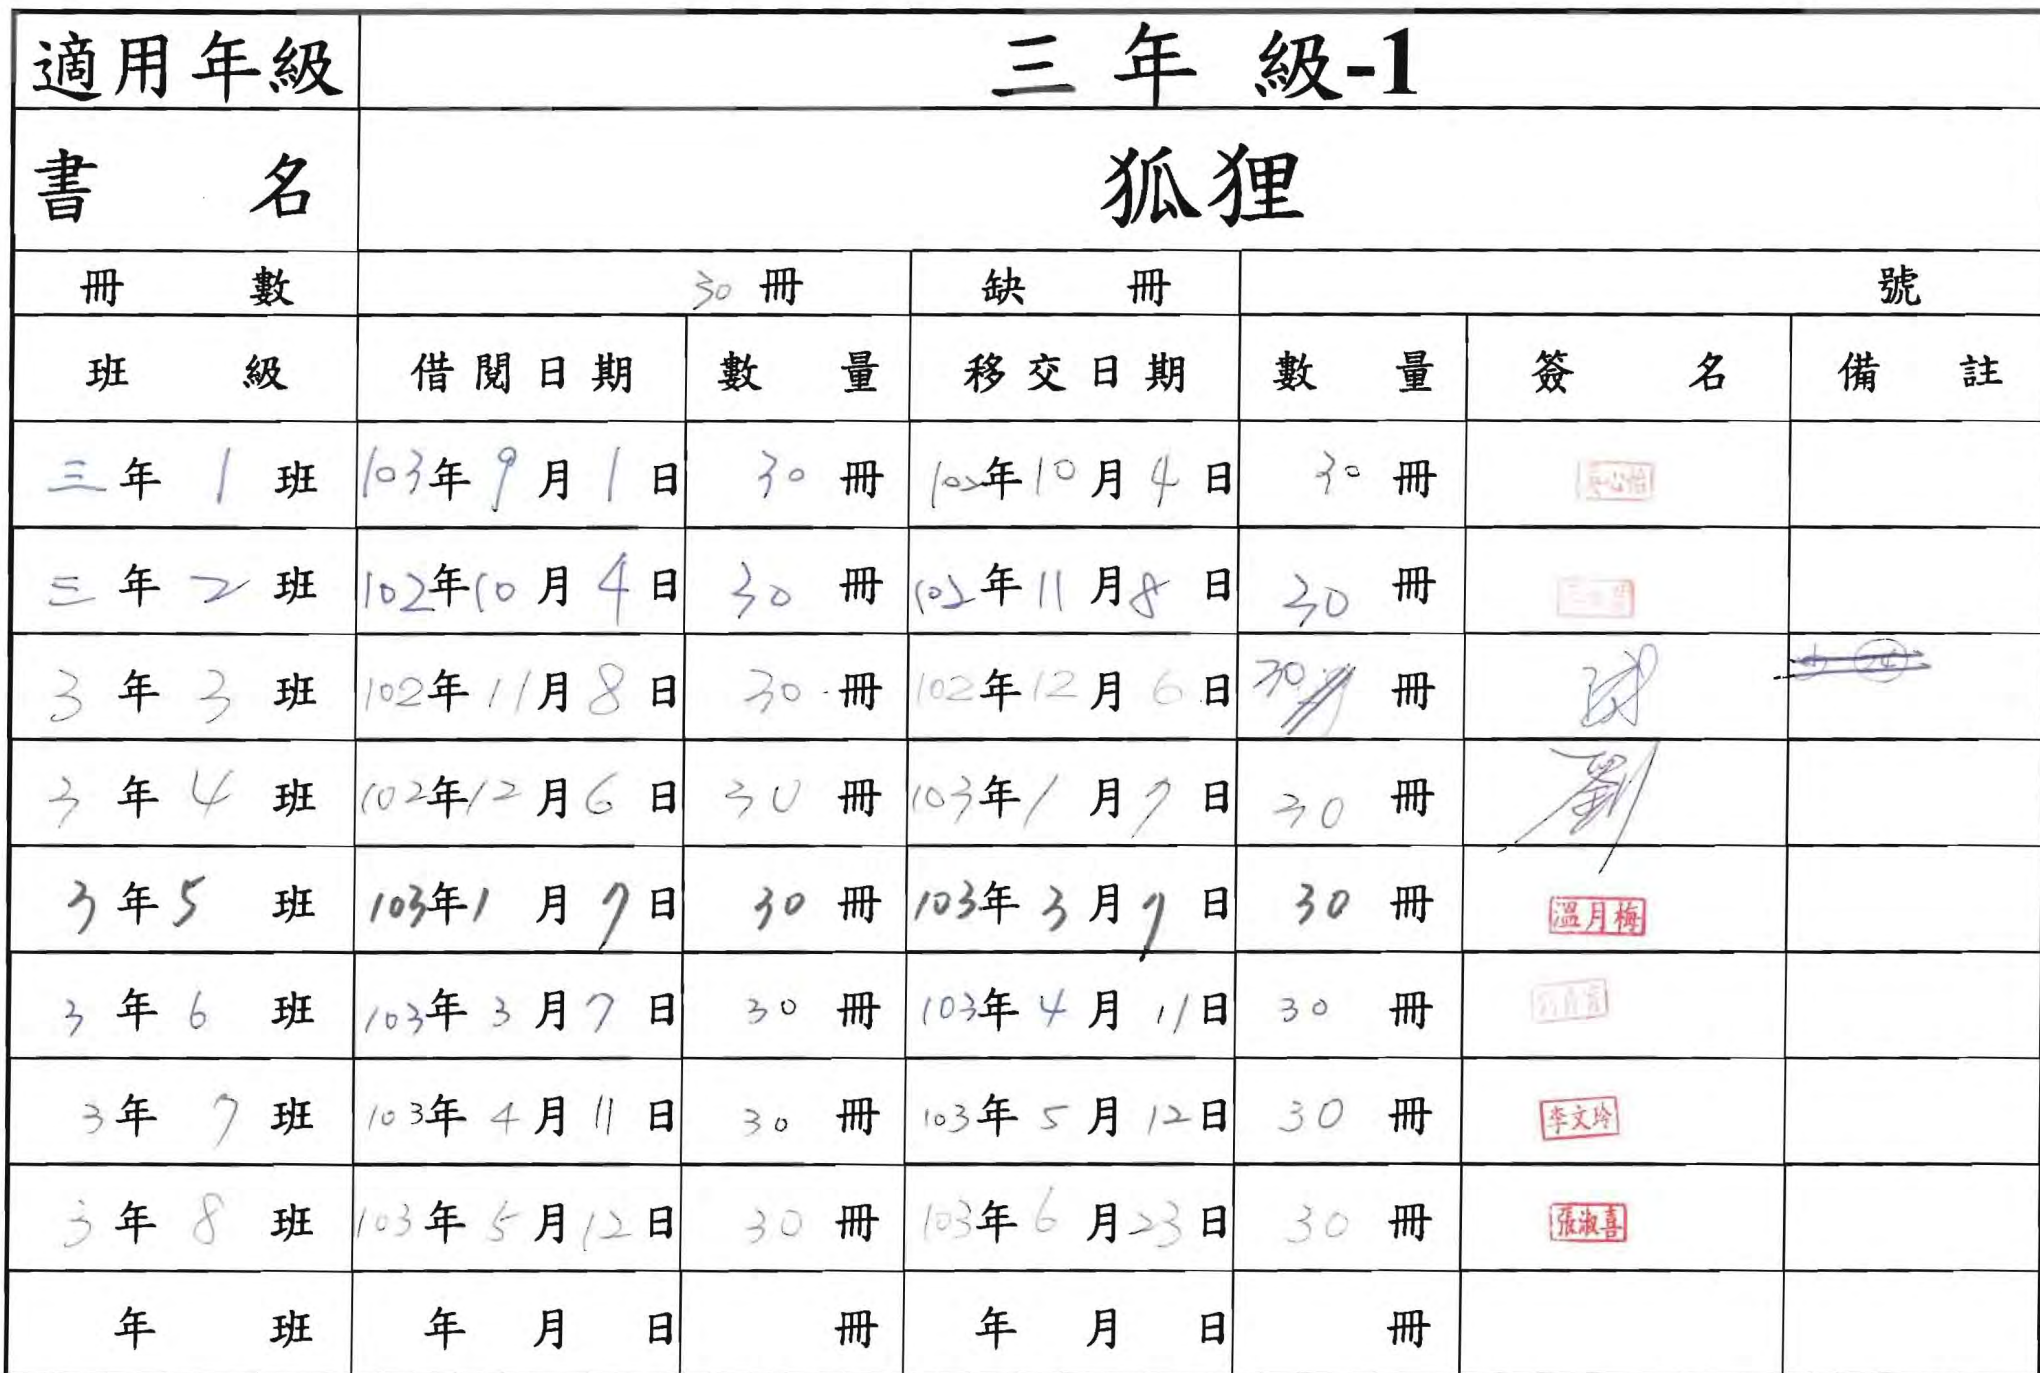 適用年級 三年級-1
書名 狐狸
冊數 30冊 缺冊 號
班級 借閱日期 數量 移交日期 數量 簽名 備註
三年1班 103年9月1日 30冊 102年10月4日 30冊
三年2班 102年10月4日 30冊 102年11月8日 30冊
3年3班 102年11月8日 30冊 102年12月6日 30冊
3年4班 102年12月6日 30冊 103年1月7日 30冊 劉
3年5班 103年1月7日 30冊 103年3月7日 30冊 溫月梅
3年6班 103年3月7日 30冊 103年4月11日 30冊
3年7班 103年4月11日 30冊 103年5月12日 30冊 李文玲
3年8班 103年5月12日 30冊 103年6月23日 30冊 張淑喜
年班 年月日 冊 年月日 冊